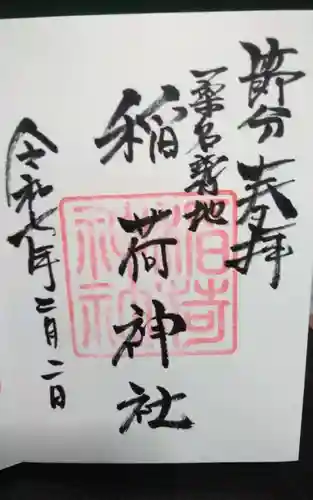 節分 奉拝
桑名築地
稲荷神社
令和七年二月二日
稲荷神社